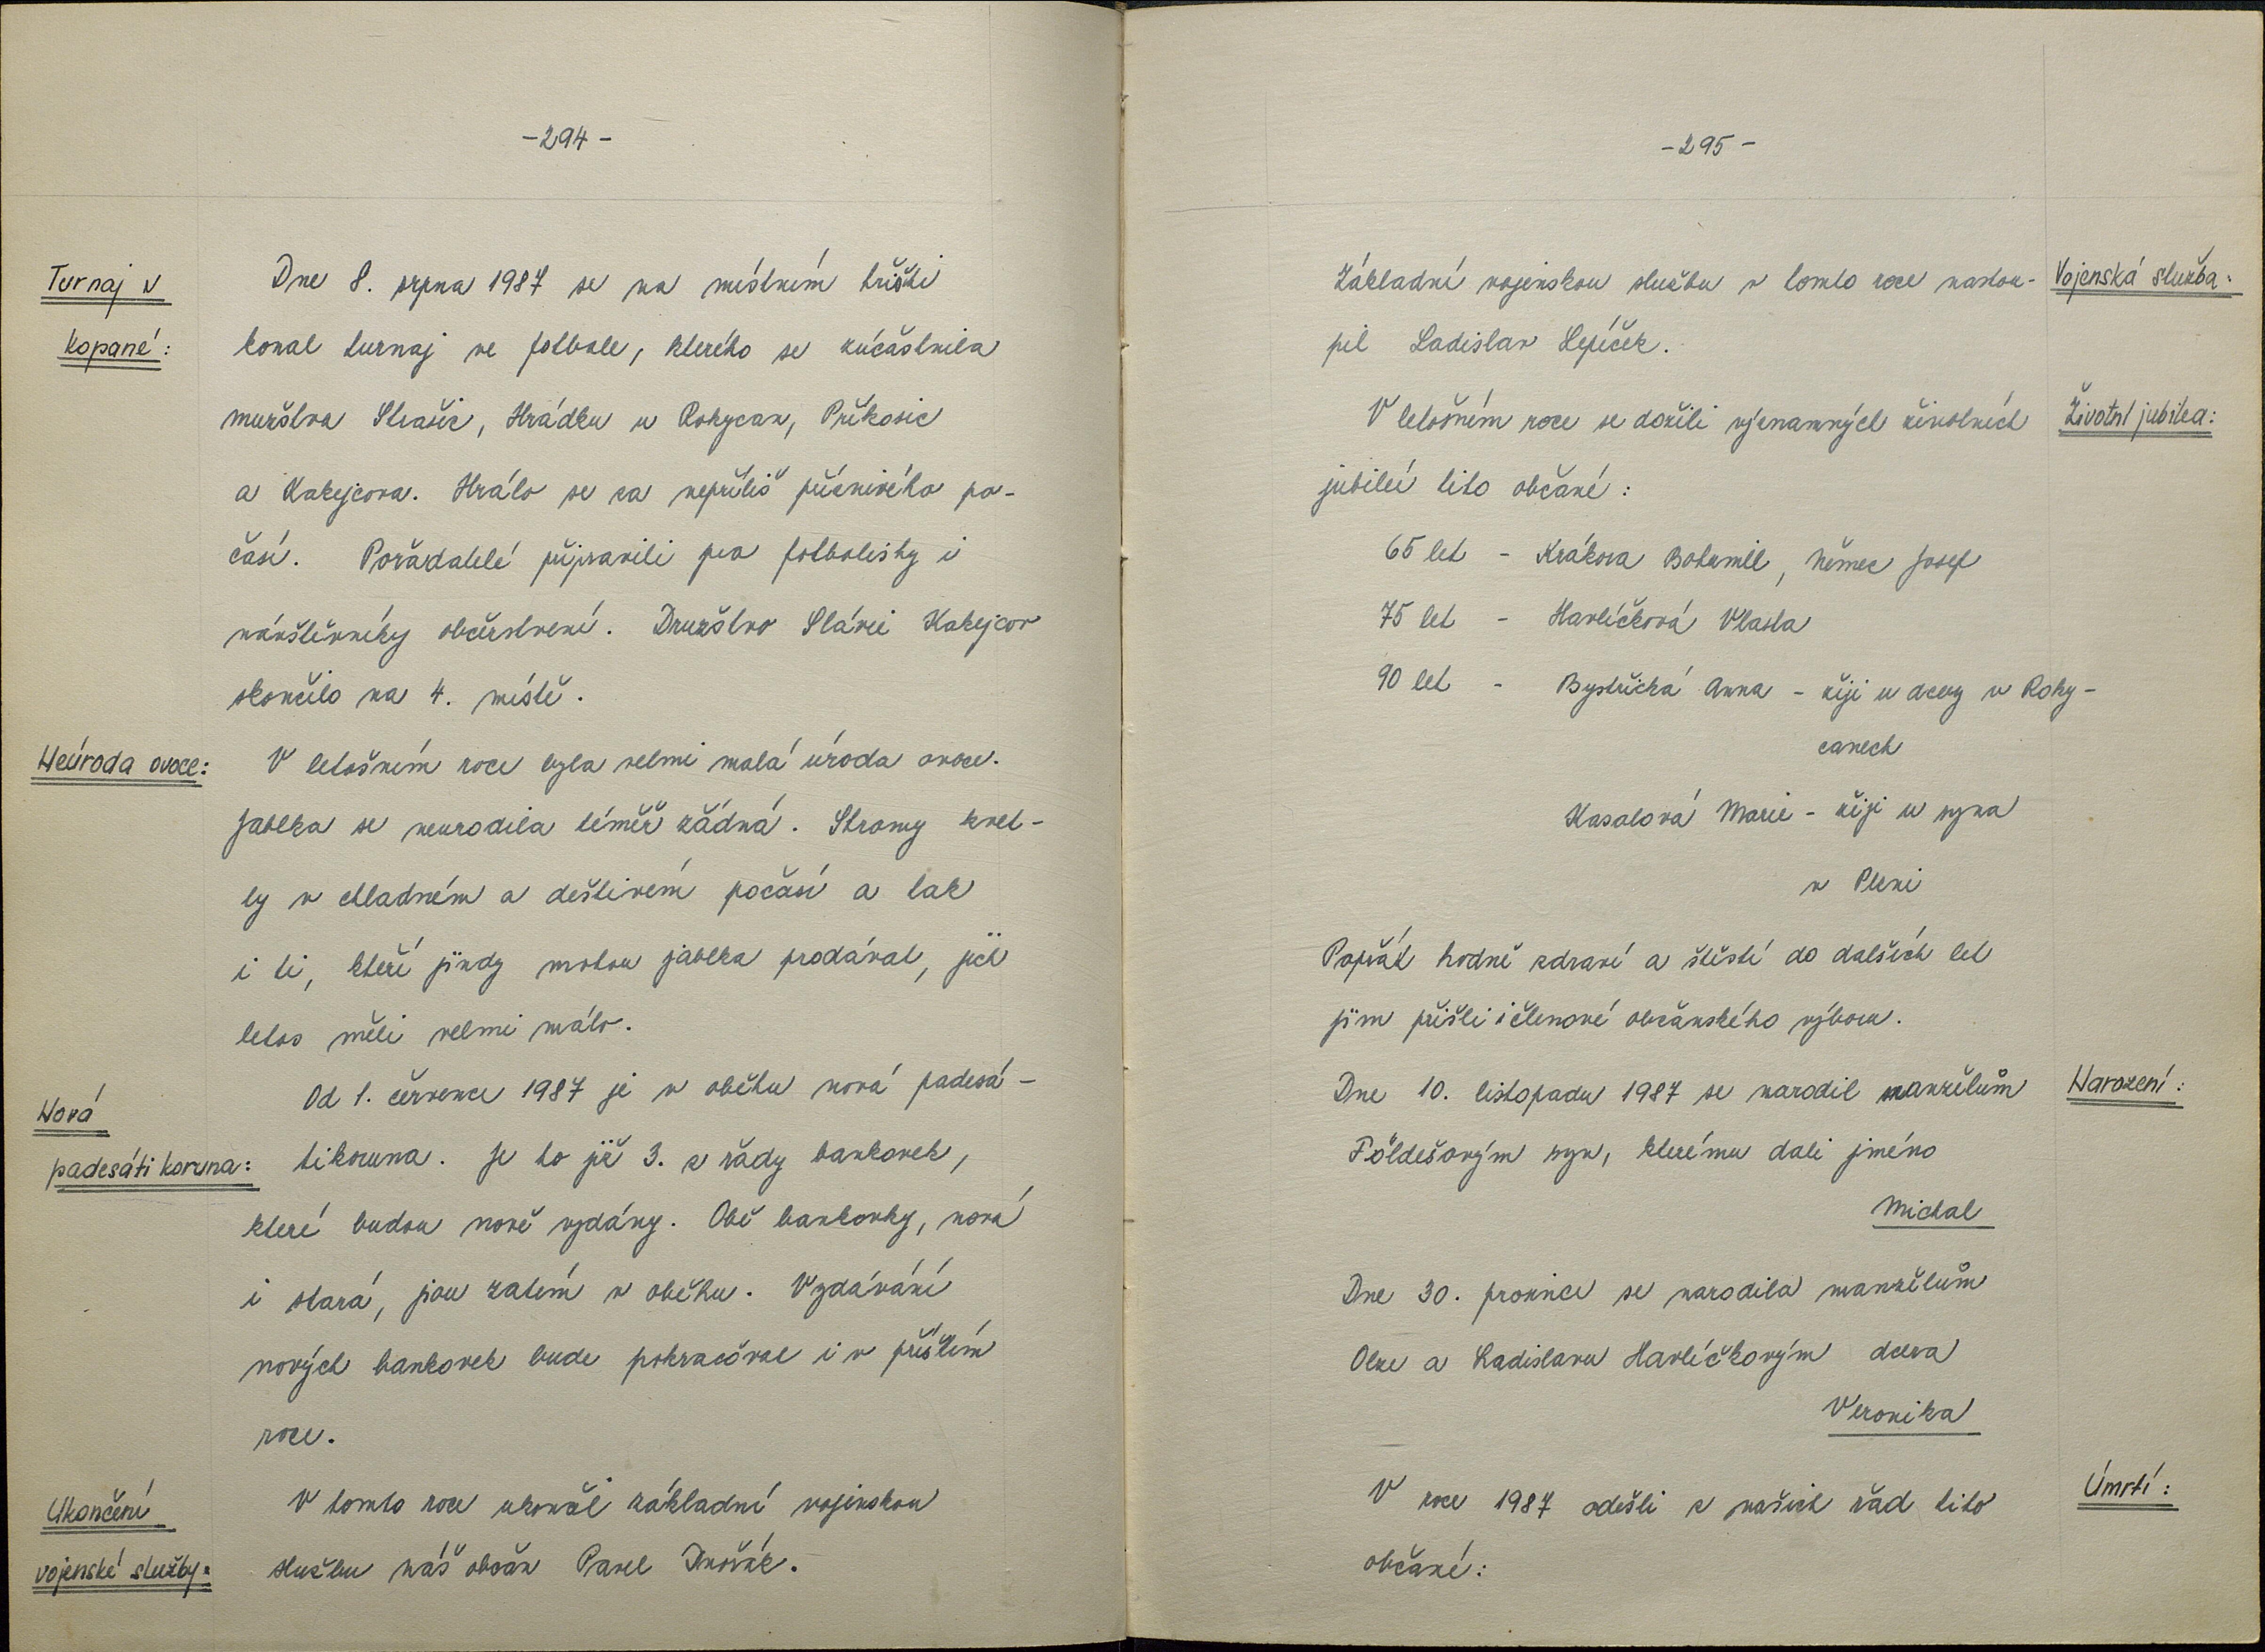 -294-
Turnaj v
kopané:
Dne 8. srpna 1987 se na místním hřišti
konal turnaj ve fotbale, kterého se zúčastnila
mužstva Strašic, Hrádku u Rokycan, Příkosic
a Kakejcova. Hrálo se za nepříliš příznivého po-
časí. Pořadatelé připravili pro fotbalisty i
návštěvníky občerstvení. Družstvo Slávie Kakejcov
skončilo na 4. místě.
Neúroda ovoce:
V letošním roce byla velmi malá úroda ovoce.
Jablka se neurodila téměř žádná. Stromy kvet-
ly v chladném a deštivém počasí a tak
i ti, kteří jindy mohou jablka prodávat, jich
letos měli velmi málo.
Nová
padesáti koruna:
Od 1. července 1987 je v oběhu nová padesá-
tikoruna. Je to již 3. z řady bankovek,
které budou nově vydány. Obě bankovky, nová
i stará, jsou zatím v oběhu. Vydávání
nových bankovek bude pokračovat i v příštím
roce.
Ukončení
vojenské služby:
V tomto roce ukončil základní vojenskou
službu náš občan Pavel Dvořák.
-295-
Vojenská služba:
Základní vojenskou službu v tomto roce nastou-
pil Ladislav Lepíček.
Životní jubilea:
V letošním roce se dožili významných životních
jubileí tito občané:
65 let - Krákora Bohumil, Němec Josef
75 let - Havlíčková Vlasta
90 let - Bystřická Anna - žije u dcery v Roky-
canech
Kasalová Marie - žije u syna
v Plzni
Popřát hodně zdraví a štěstí do dalších let
jim přišli i členové občanského výboru.
Narození:
Dne 10. listopadu 1987 se narodil manželům
Földešovým syn, kterému dali jméno
Michal
Dne 30. prosince se narodila manželům
Olze a Ladislavu Havlíčkovým dcera
Veronika
Úmrtí:
V roce 1987 odešli z našich řad tito
občané: